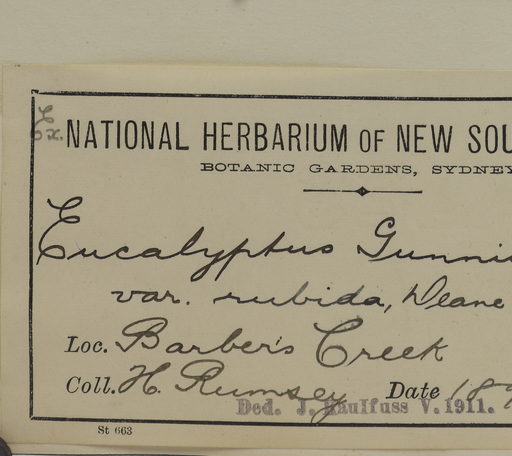 Ex.
NATIONAL HERBARIUM OF NEW SOU
BOTANIC GARDENS, SYDNEY
Eucalyptus Gunnii
var. rubida, Deane
Loc. Barber's Creek
Coll. H. Rumsey Date 189
Ded. J. Kaulfuss V. 1911.
St 663